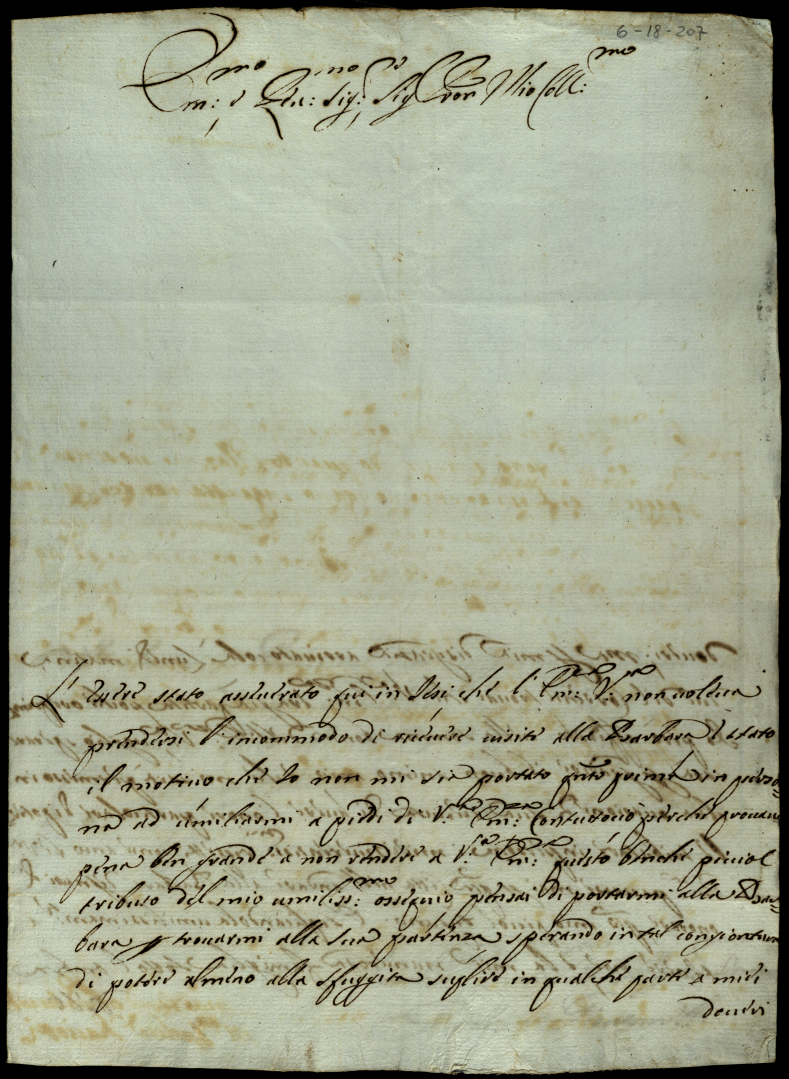 6-18-207
Em:mo e Reu:mo Sig:re Sig:re Pron Mio Coll:mo
L'essere stato asseuerato qui in Iesi che l'Em:za V:ra non uoleua
prendersi l'incommodo di riceuere uisite alla Barbara è stato
il motiuo che Io non mi sia portato prima in perso=
na ad umiliarmi a piedi di V:ra Em:za Contuttociò perche prouauo
pena ben grande a non rendere a V:ra Em:za questo benche picciol
tributo del mio umiliss:mo ossequio pensai di portarmi alla Bar=
bara trouarmi alla sua partenza sperando in tal congiontura
di potere almeno alla sfuggita suplire in qualche parte a miei
doueri